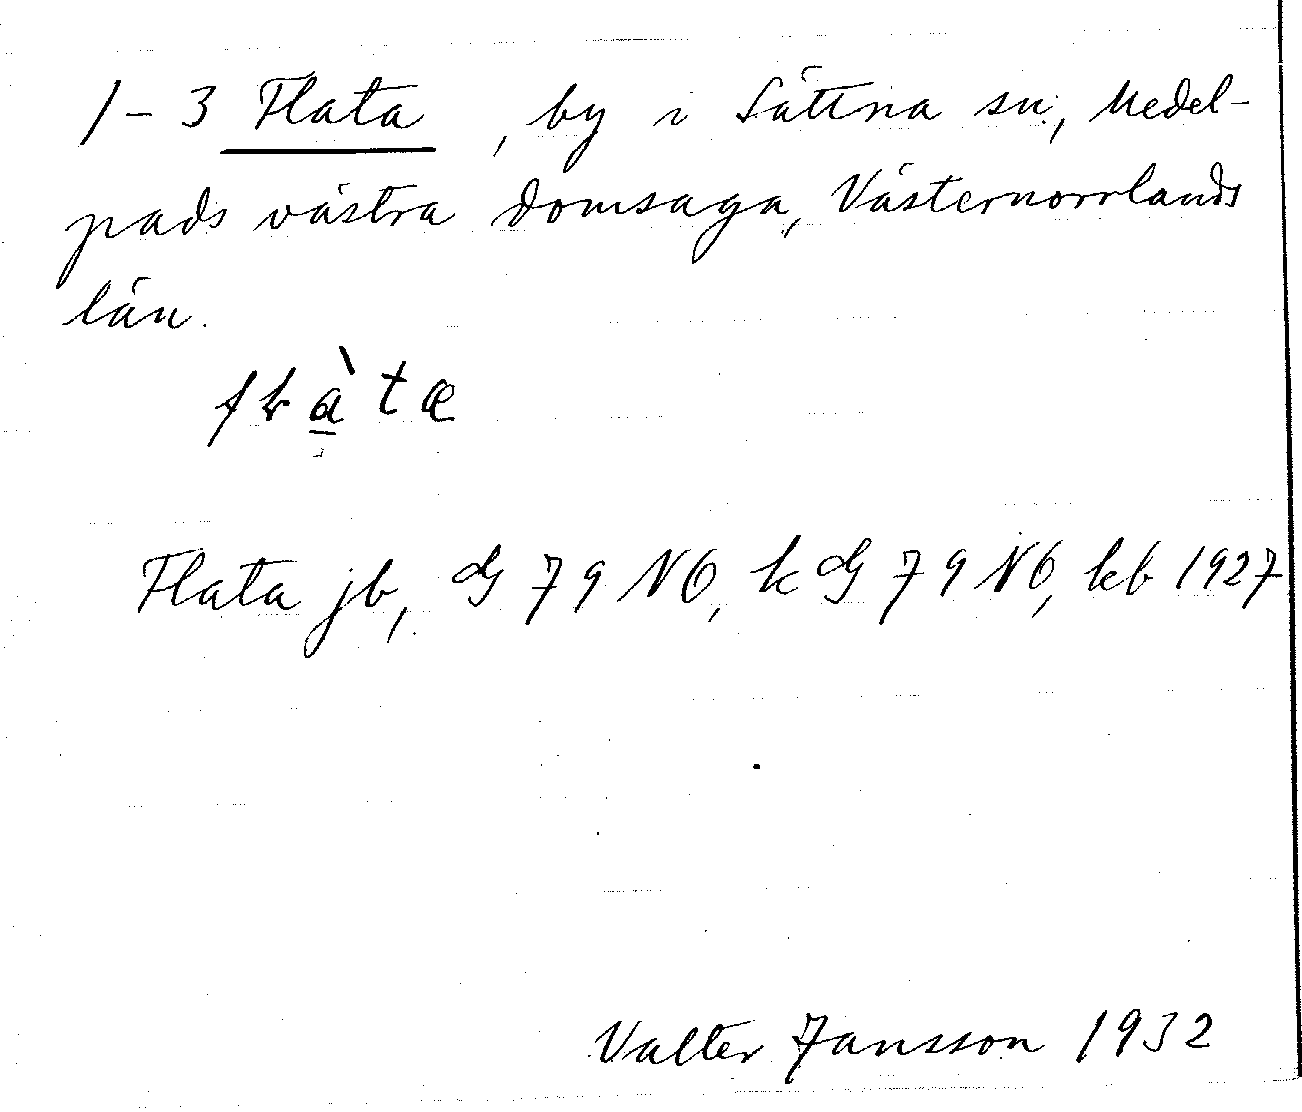 1-3 Flata, by i Sättna sn, Medel-
pads västra domsaga, Västernorrlands
län.
Flata jb, G 79 NO, k G 79 NO, kb 1927
Valter Jansson 1932